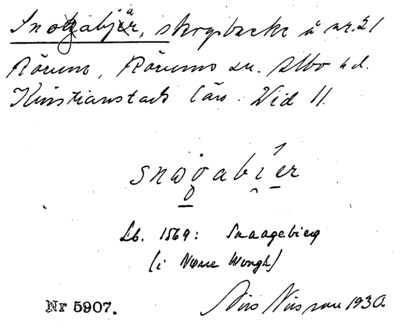 Snogabjär, skogbacke å nr. 21
Rörum, Rörums sn. Albo hd.
Kristianstads län. Wid 11.
snωgabíer
Lb. 1569: Snaagebierg
(i Norre Wongh)
Nr 5907.
Nils Nilsson 1930.